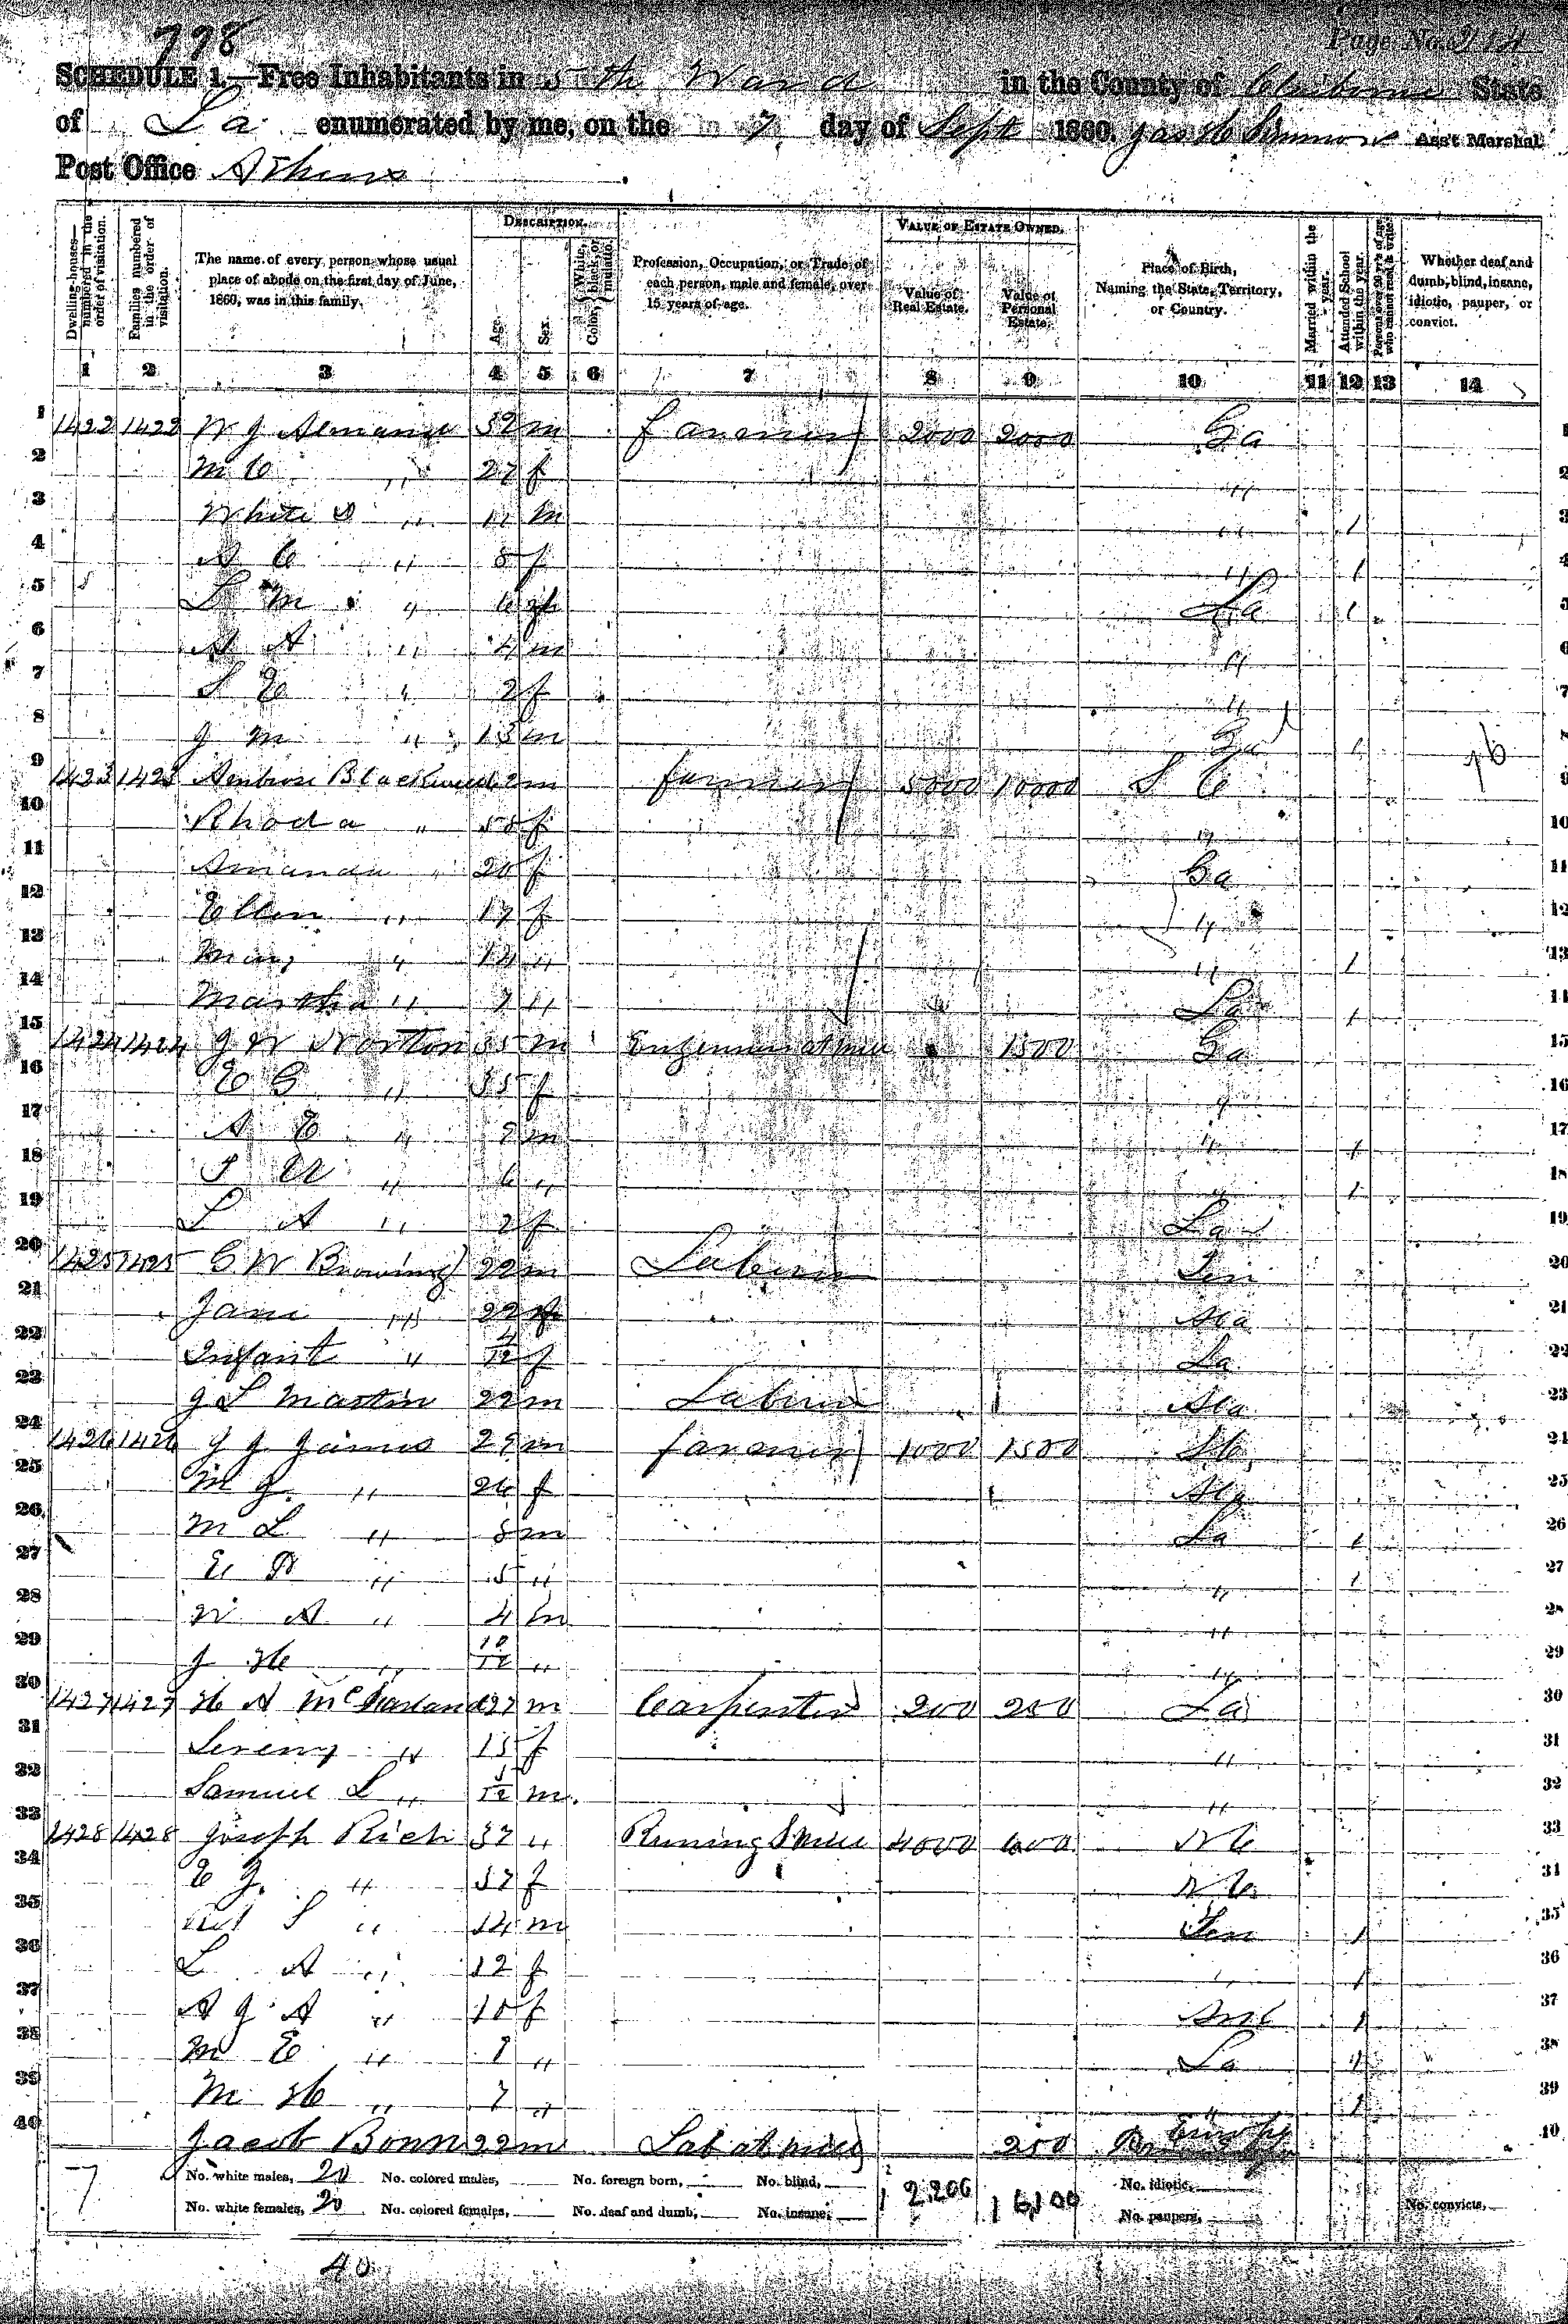 798
Page No.
SCHEDULE 1.—Free Inhabitants in 5th Ward in the County of Claiborne State
of La enumerated by me, on the 7 day of Sept 1860. Ass't Marshal
Post Office
DESCRIPTION. VALUE OF ESTATE OWNED.
Dwelling-houses—numbered in the order of visitation. Families numbered in the order of visitation. The name of every person whose usual place of abode on the first day of June, 1860, was in this family. Age. Sex. Color, White, black, or mulatto. Profession, Occupation, or Trade of each person, male and female, over 15 years of age. Value of Real Estate. Value of Personal Estate. Place of Birth, Naming the State, Territory, or Country. Married within the year. Attended School within the year. Persons over 20 y'rs of age who cannot read & write. Whether deaf and dumb, blind, insane, idiotic, pauper, or convict.
1 2 3 4 5 6 7 8 9 10 11 12 13 14
1 1422 1422 W J m farmer 2000 2000 Ga 1
2 M C " 27 f " 2
3 White " 11 m " 1 3
4 A C " 8 f " 1 4
5 L M " 6 La 1 5
6 A " 4 m " 6
7 S E " 2 f " 7
8 J M " 13 m Ga 1
9 1423 1423 Ambrose Blackwell 62 m farmer 5000 10000 S C 9
10 Rhoda " f " 10
11 Amanda " 20 f Ga 11
12 Ellen " 17 f " 12
13 " 12 " " 1 13
14 Martha " 7 " La 1 14
15 1424 1424 J W Norton 35 m Engineer at mill 1500 Ga 15
16 E G " 35 f " 16
17 A E " m " 1 17
18 " 6 " " 1 18
19 L A " 2 f La 19
20 1425 1425 C W Browning 22 m Laborer Ten 20
21 Jane " 22 f Ala 21
22 Infant " 4/12 f La 22
23 J L Martin 22 m Laborer Ala 23
24 1426 1426 J J James 29 m farmer 1000 1500 24
25 M J " 26 f Ala 25
26 M L " 8 m La 1 26
27 E " 5 " " 1 27
28 W A " 4 m " 28
29 J H " 10/12 " " 29
30 1427 1427 H A McFarland 27 m Carpenter 200 200 La 30
31 " 15 f " 31
32 Samuel L " m " 32
33 1428 1428 Joseph Rich 37 " Runing S Mill 4000 600 N C 33
34 E J. " 37 f N C 34
35 S " 14 m Ten 1 35
36 L A " 12 f " 1 36
37 A J A " 10 f 1 37
38 M E " " La 1 38
39 M H " 7 " " 1 39
40 Jacob Bonn 22 m Lab at mill 250 40
No. white males, 20 No. colored males, No. foreign born, No. blind, No. idiotic,
No. white females, 20 No. colored females, No. deaf and dumb, No. insane, No. paupers, No. convicts,
12,200 16,100
40